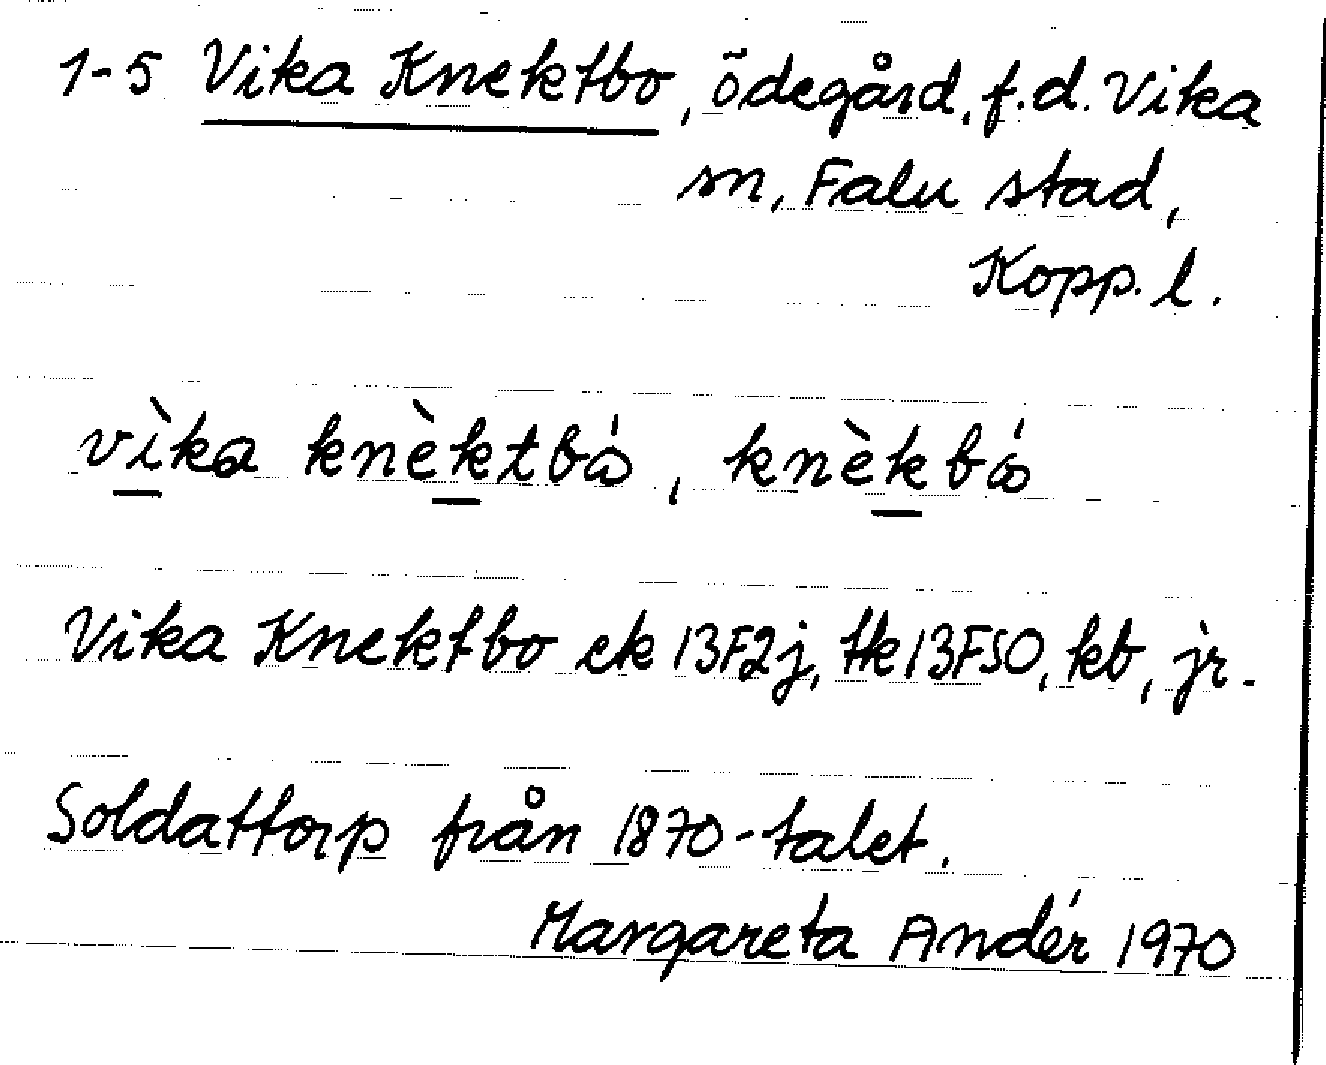 1-5 Vika Knektbo, ödegård, f.d. Vika
sn, Falu stad,
Kopp. l.
vìka knèktbó, knèkbó
Vika Knektbo ek 13F2j, Hk 13FSO, kb, jr.
Soldattorp från 1870-talet.
Margareta Andér 1970